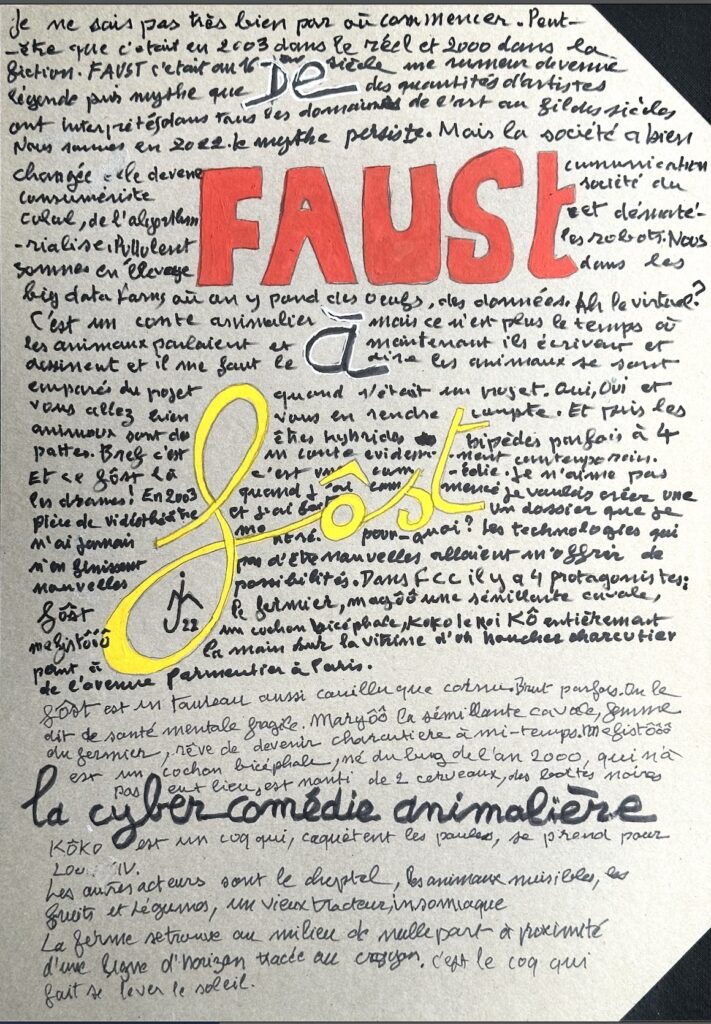 Je ne sais pas très bien par où commencer. Peut-
-être que c'était en 2003 dans le réel et 2000 dans la
fiction. FAUST c'était au 16 ème siècle une rumeur devenue
légende puis mythe que DE des quantités d'artistes
ont interprétés dans tous les domaines de l'art au fil des siècles
Nous sommes en 2022. le mythe persiste. Mais la société a bien
changée elle devenue communication
consumériste société du
de l'algorithm et dématé-
-rialisé. Pullulent les robots. Nous
sommes en élevage dans les
FAUSt
big data farms où on y pond des oeufs, des données. Ah le virtuel?
C'est un conte animalier à mais ce n'est plus le temps où
les animaux parlaient et maintenant ils écrivent et
dessinent et il me faut le dire les animaux se sont
emparés du projet quand c'était un projet. Oui, Oui et
vous allez bien vous en rendre compte. Et puis les
animaux sont des êtres hybrides bipèdes parfois à 4
pattes. Bref c'est un conte évidem- -ment contemporain.
Et ce fôst là c'est une com -édie. Je n'aime pas
les drames! En 2003 quand j'ai com mencé je voulais créer une
pièce de vidéothéâtre et j'ai un dossier que je
n'ai jamais pour-quoi? Les technologies qui
n'en finissent pas d'être nouvelles allaient m'offrir de
nouvelles possibilités. Dans FCC il y a 4 protagonistes:
fôst
fôst le fermier, une sémillante cavale,
mefistôôô un cochon bicéphale, Koko le roi KÔ entièrement
peint à la main sur la vitrine d'un boucher charcutier
de l'avenue Parmentier à Paris.
jh 22
fôst est un taureau aussi couillu que cornu. Brut parfois. On le
dit de santé mentale fragile. Margôô la sémillante cavale, femme
du fermier, rêve de devenir charcutière à mi-temps. Mefistôôô
est un cochon bicéphale, né du bug de l'an 2000, qui n'a
pas eut lieu, est nanti de 2 cerveaux, des bottes noires
la cyber comédie animalière
KÔKO est un coq qui, caquètent les poules, se prend pour
XIV.
Les autres acteurs sont le cheptel, les animaux nuisibles, les
fruits et légumes, un vieux tracteur insomniaque
La ferme se trouve au milieu de nulle part à proximité
d'une ligne d'horizon tracée au crayon. c'est le coq qui
fait se lever le soleil.